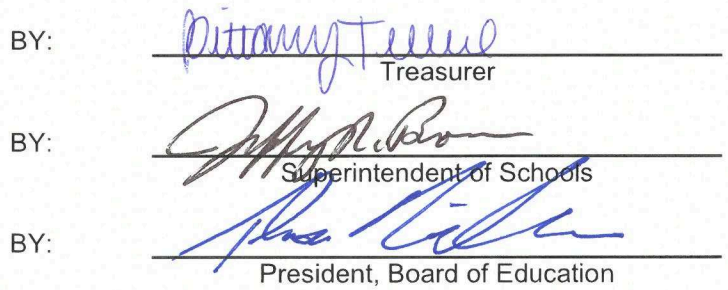 BY:
Treasurer
BY: Jeffry R. Brown
Superintendent of Schools
BY:
President, Board of Education